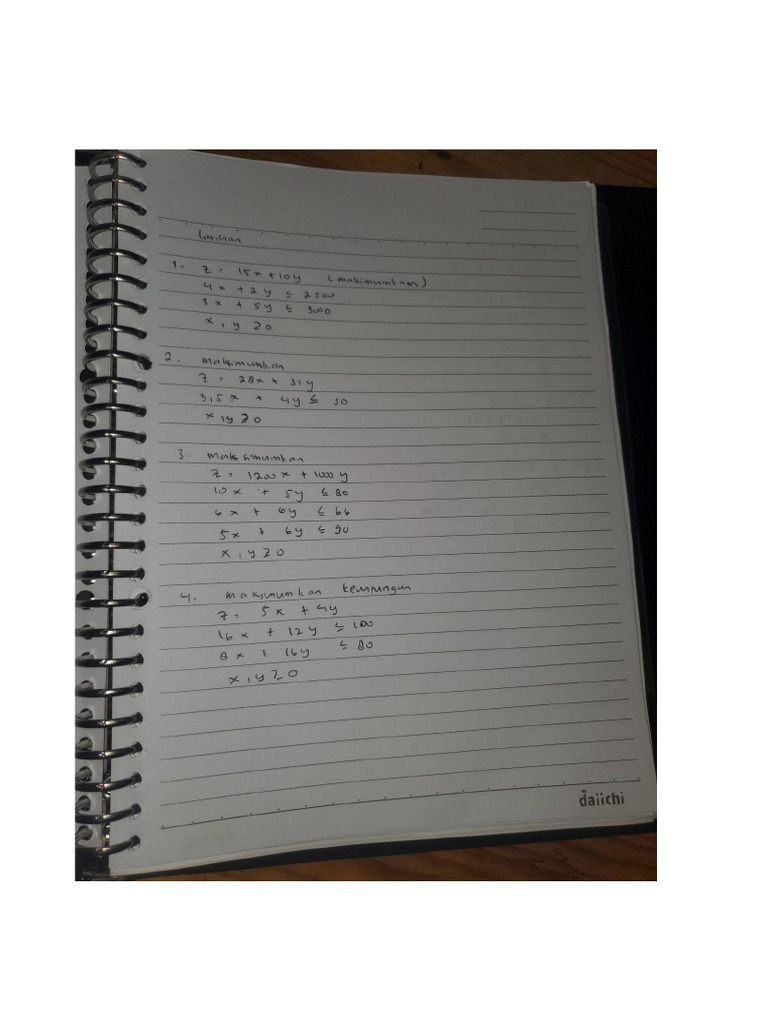 Latihan
1. Z = 15x + 10y (maksimumkan)
4x + 2y ≤ 2500
3x + 5y ≤ 3000
x, y ≥ 0
2. maksimumkan
Z = 28x + 31y
3,5x + 4y ≤ 50
x, y ≥ 0
3. maksimumkan
Z = 1200x + 1000y
10x + 5y ≤ 80
6x + 6y ≤ 66
5x + 6y ≤ 90
x, y ≥ 0
4. maksimumkan keuntungan
Z = 5x + 4y
16x + 12y ≤ 100
8x + 16y ≤ 80
x, y ≥ 0
daiichi